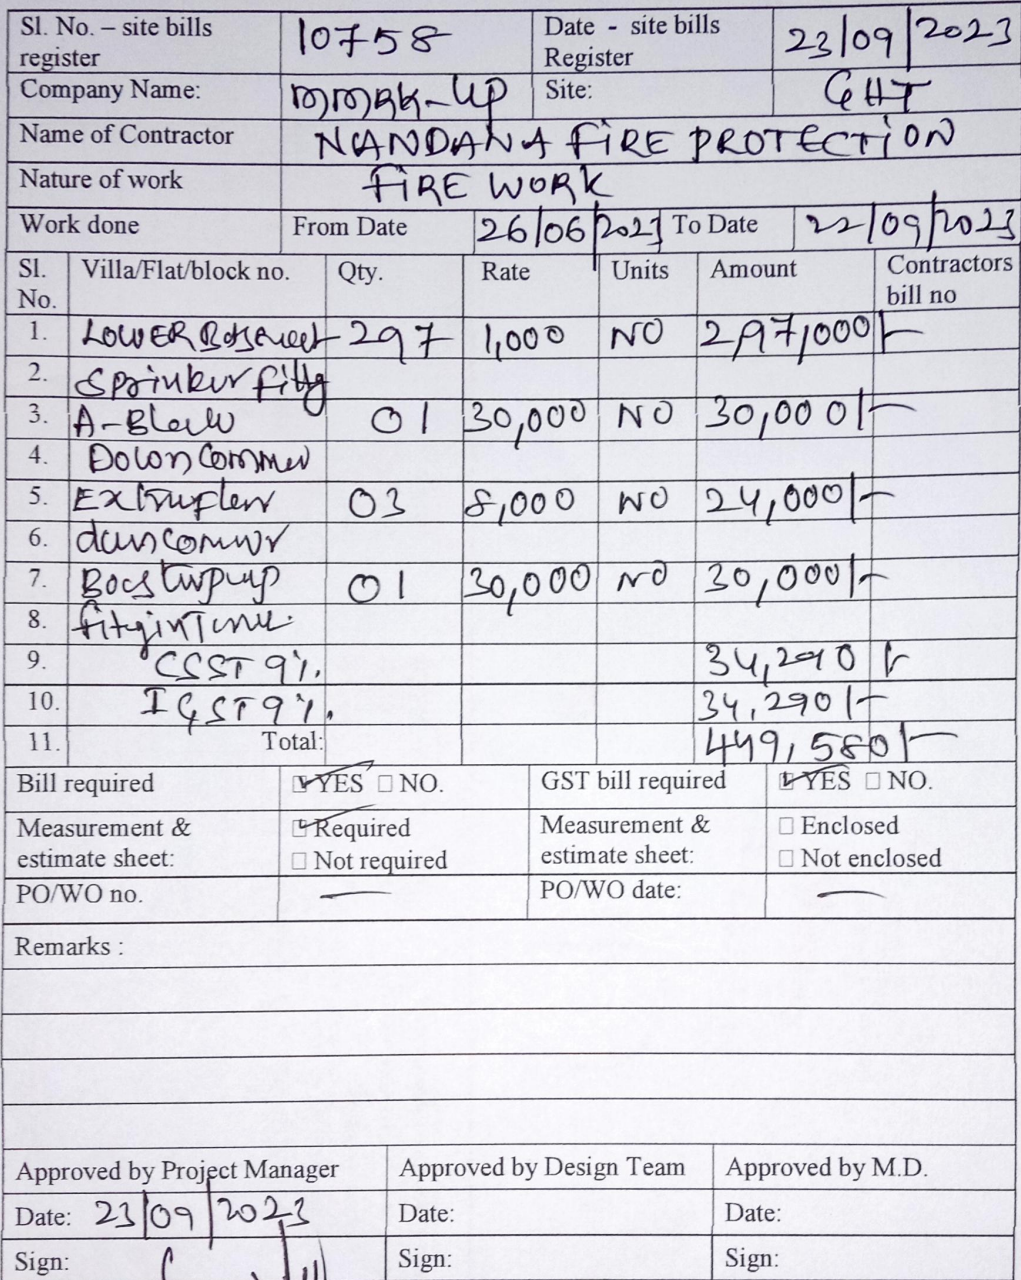 Sl. No. – site bills register 10758 Date - site bills Register 23/09/2023
Company Name: Site: GHT
Name of Contractor NANDANA FIRE PROTECTION
Nature of work FIRE WORK
Work done From Date 26/06/2023 To Date 22/09/2023
Sl. No. Villa/Flat/block no. Qty. Rate Units Amount Contractors bill no
1. LOWER 297 1,000 NO 2,97,000/-
2.
3. A- 01 30,000 NO 30,000/-
4.
5. 03 8,000 NO 24,000/-
6.
7. 01 30,000 NO 30,000/-
8.
9. CSST 9%. 34,290/-
10. IGST 9%. 34,290/-
11. Total: 449,580/-
Bill required YES NO. GST bill required YES NO.
Measurement & estimate sheet: Required Measurement & estimate sheet: Enclosed
Not required Not enclosed
PO/WO no. — PO/WO date: —
Remarks :
Approved by Project Manager Approved by Design Team Approved by M.D.
Date: 23/09/2023 Date: Date:
Sign: Sign: Sign: